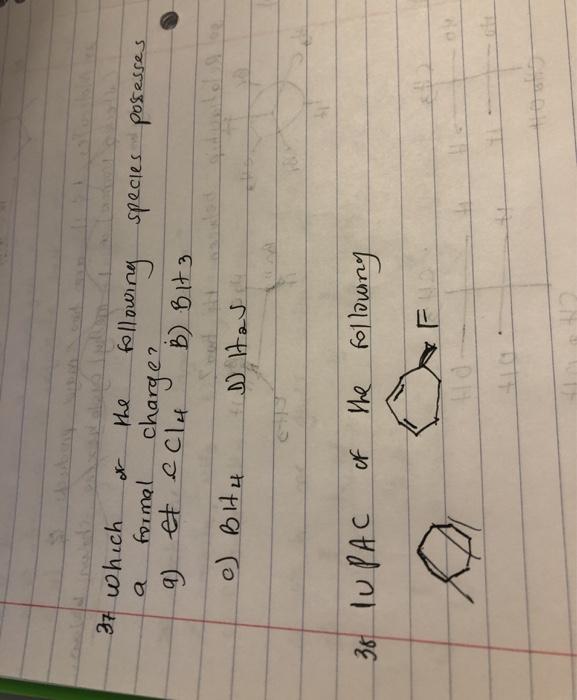 37 Which or the following species posesses
a formal charge?
a) CCl4 b) BH3
c) BH4 D) H2S
38 IUPAC of the following
F